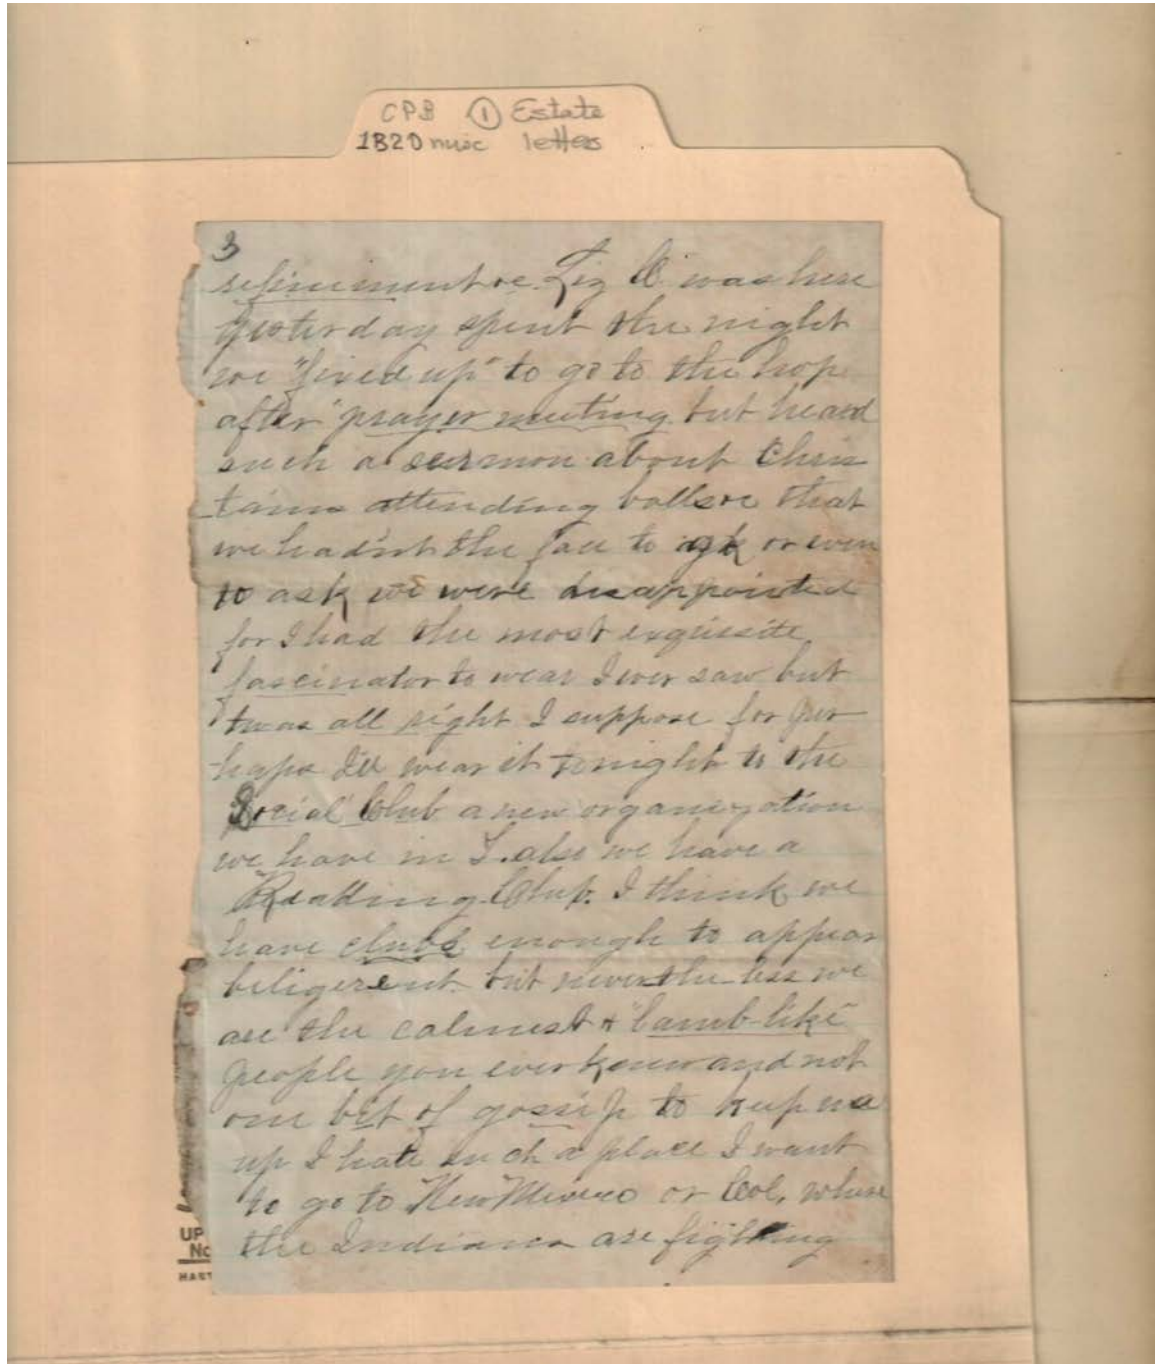 CPB ① Estate
1820 misc letters
3
refinement &c. Liz C. was here
yesterday spent the night
we "fixed up" to go to the hop
after "prayer meeting but heard
such a sermon about Chris
tains attending balls &c that
we hadn't the face to go or even
to ask we were disappointed
for I had the most exquisite
fascinator to wear I ever saw but
twas all right I suppose for per
haps I'll wear it tonight to the
Social Club a new organization
we have in L. also we have a
Reading Club. I think we
have clubs enough to appear
beligerent but never the less we
are the calmest & "lamb-like"
people you ever knew and not
one bit of gossip to keep us
up I hate such a place I want
to go to New Mexico or Col. where
the Indians are fighting
UP
No
HAST